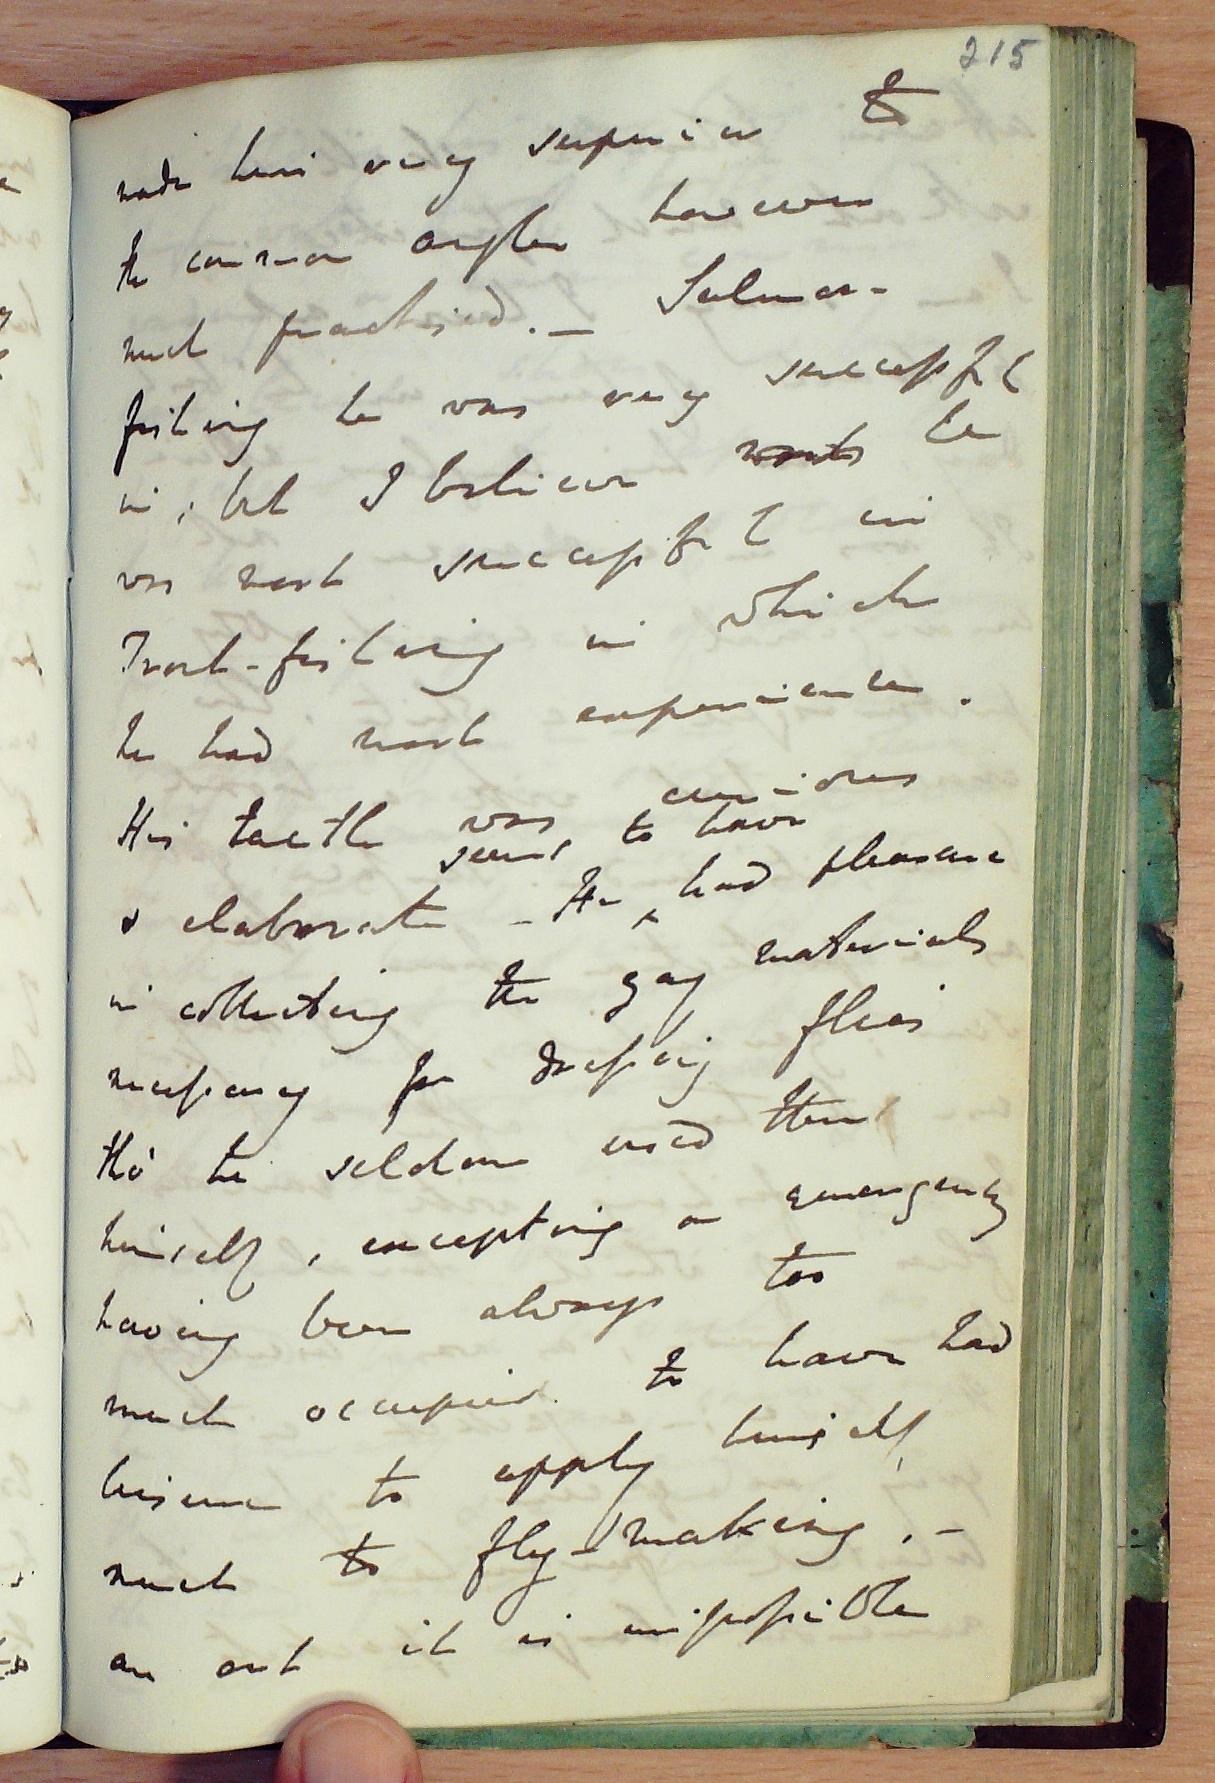 215
made him very superior to
the common angler however
much practised. — Salmon-
fishing he was very successful
in; but I believe he
was most successful in
Trout-fishing in which
he had most experience.
His tackle was curious
seems to have
& elaborate – He ^ had pleasure
in collecting the gay materials
necessary for dressing flies
tho' he seldom used them
himself, excepting on emergency
having been always too
much occupied to have had
leisure to apply himself
much to fly-making, –
an art it is impossible